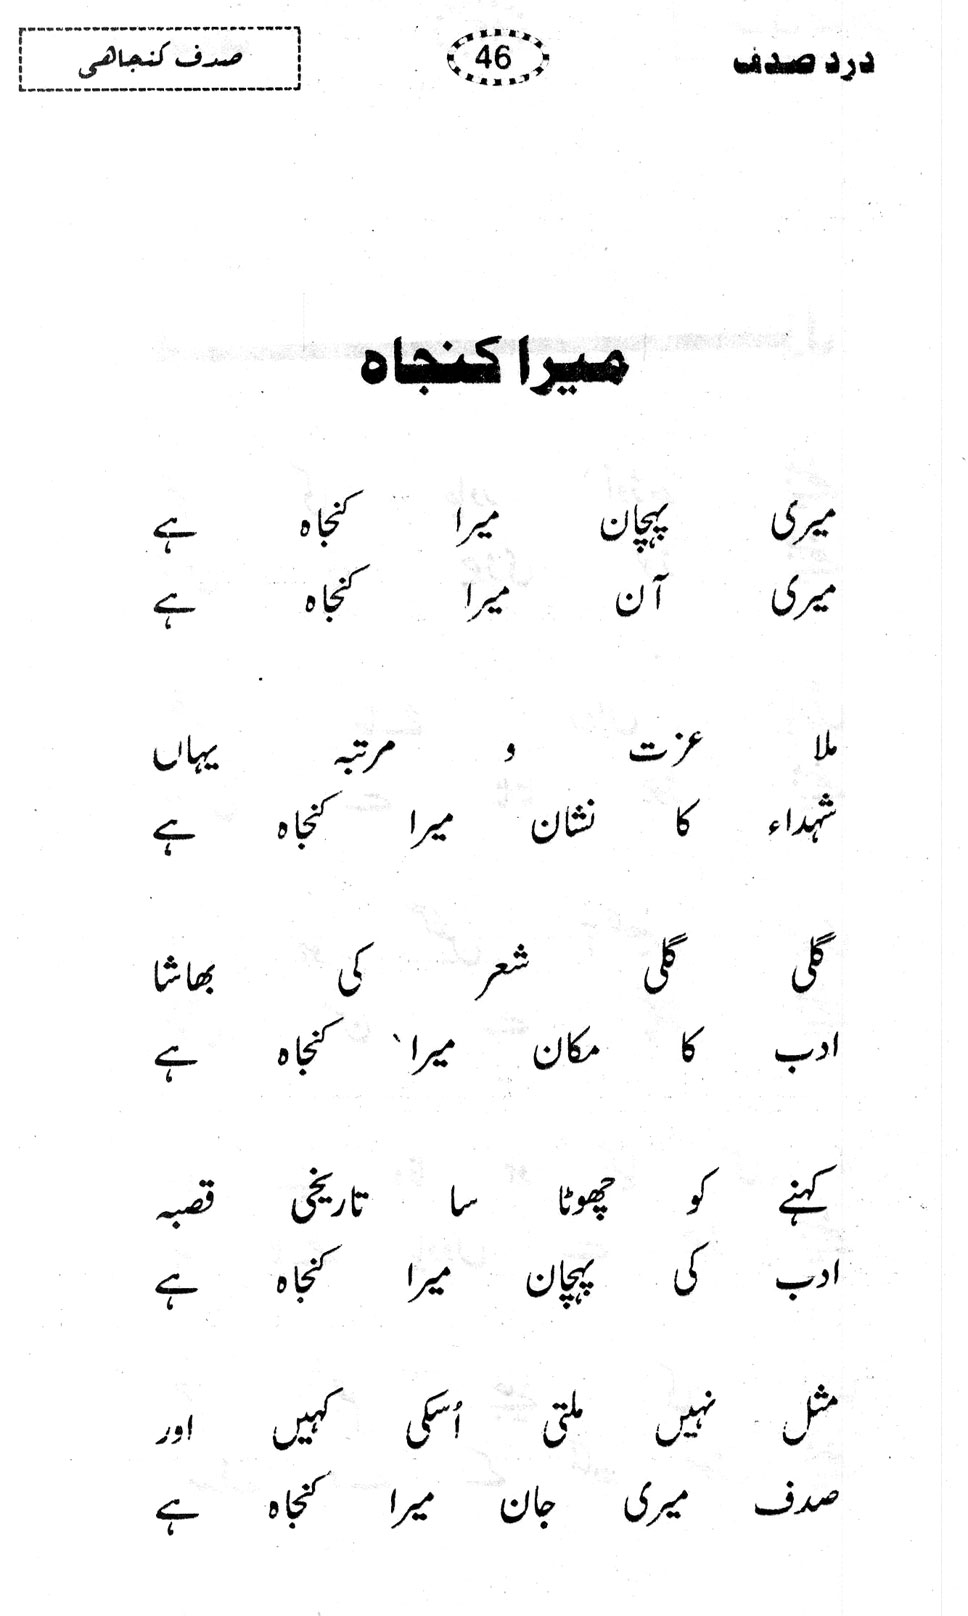 درد صدف 46 صدف کنجاهی
میرا کنجاہ
میری پہچان میرا کنجاہ ہے
میری آن میرا کنجاہ ہے
ملا عزت و مرتبہ یہاں
شہداء کا نشان میرا کنجاہ ہے
گلی گلی شعر کی بھاشا
ادب کا مکان میرا کنجاہ ہے
کہنے کو چھوٹا سا تاریخی قصبہ
ادب کی پہچان میرا کنجاہ ہے
مثل نہیں ملتی اُسکی کہیں اور
صدف میری جان میرا کنجاہ ہے